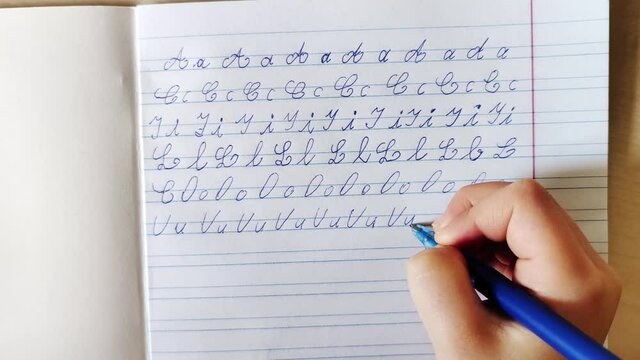 A a A a A a A a A a A a
C c C c C c C c C c C c C c
I i I i I i I i I i I i I i I i
L l L l L l L l L l L l L
O o O o O o O o O o O o
U u U u U u U u U u U u U u